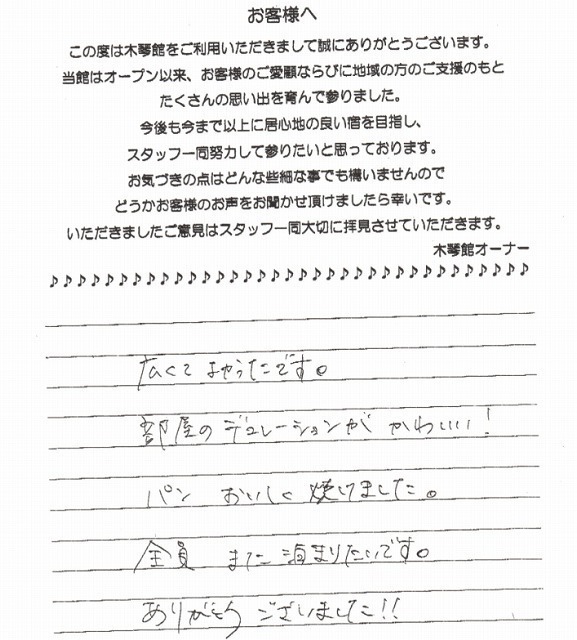 お客様へ
この度は木琴館をご利用いただきまして誠にありがとうございます。
当館はオープン以来、お客様のご愛顧ならびに地域の方のご支援のもと
たくさんの思い出を育んで参りました。
今後も今まで以上に居心地の良い宿を目指し、
スタッフ一同努力して参りたいと思っております。
お気づきの点はどんな些細な事でも構いませんので
どうかお客様のお声をお聞かせ頂けましたら幸いです。
いただきましたご意見はスタッフ一同大切に拝見させていただきます。
木琴館オーナー
♪♪♪♪♪♪♪♪♪♪♪♪♪♪♪♪♪♪♪♪♪♪♪♪♪♪♪♪♪♪♪♪♪♪♪
広くてよかったです。
部屋のデコレーションが かわいい!
パン おいしく焼けました。
全員 また泊まりたいです。
ありがとう ございました!!